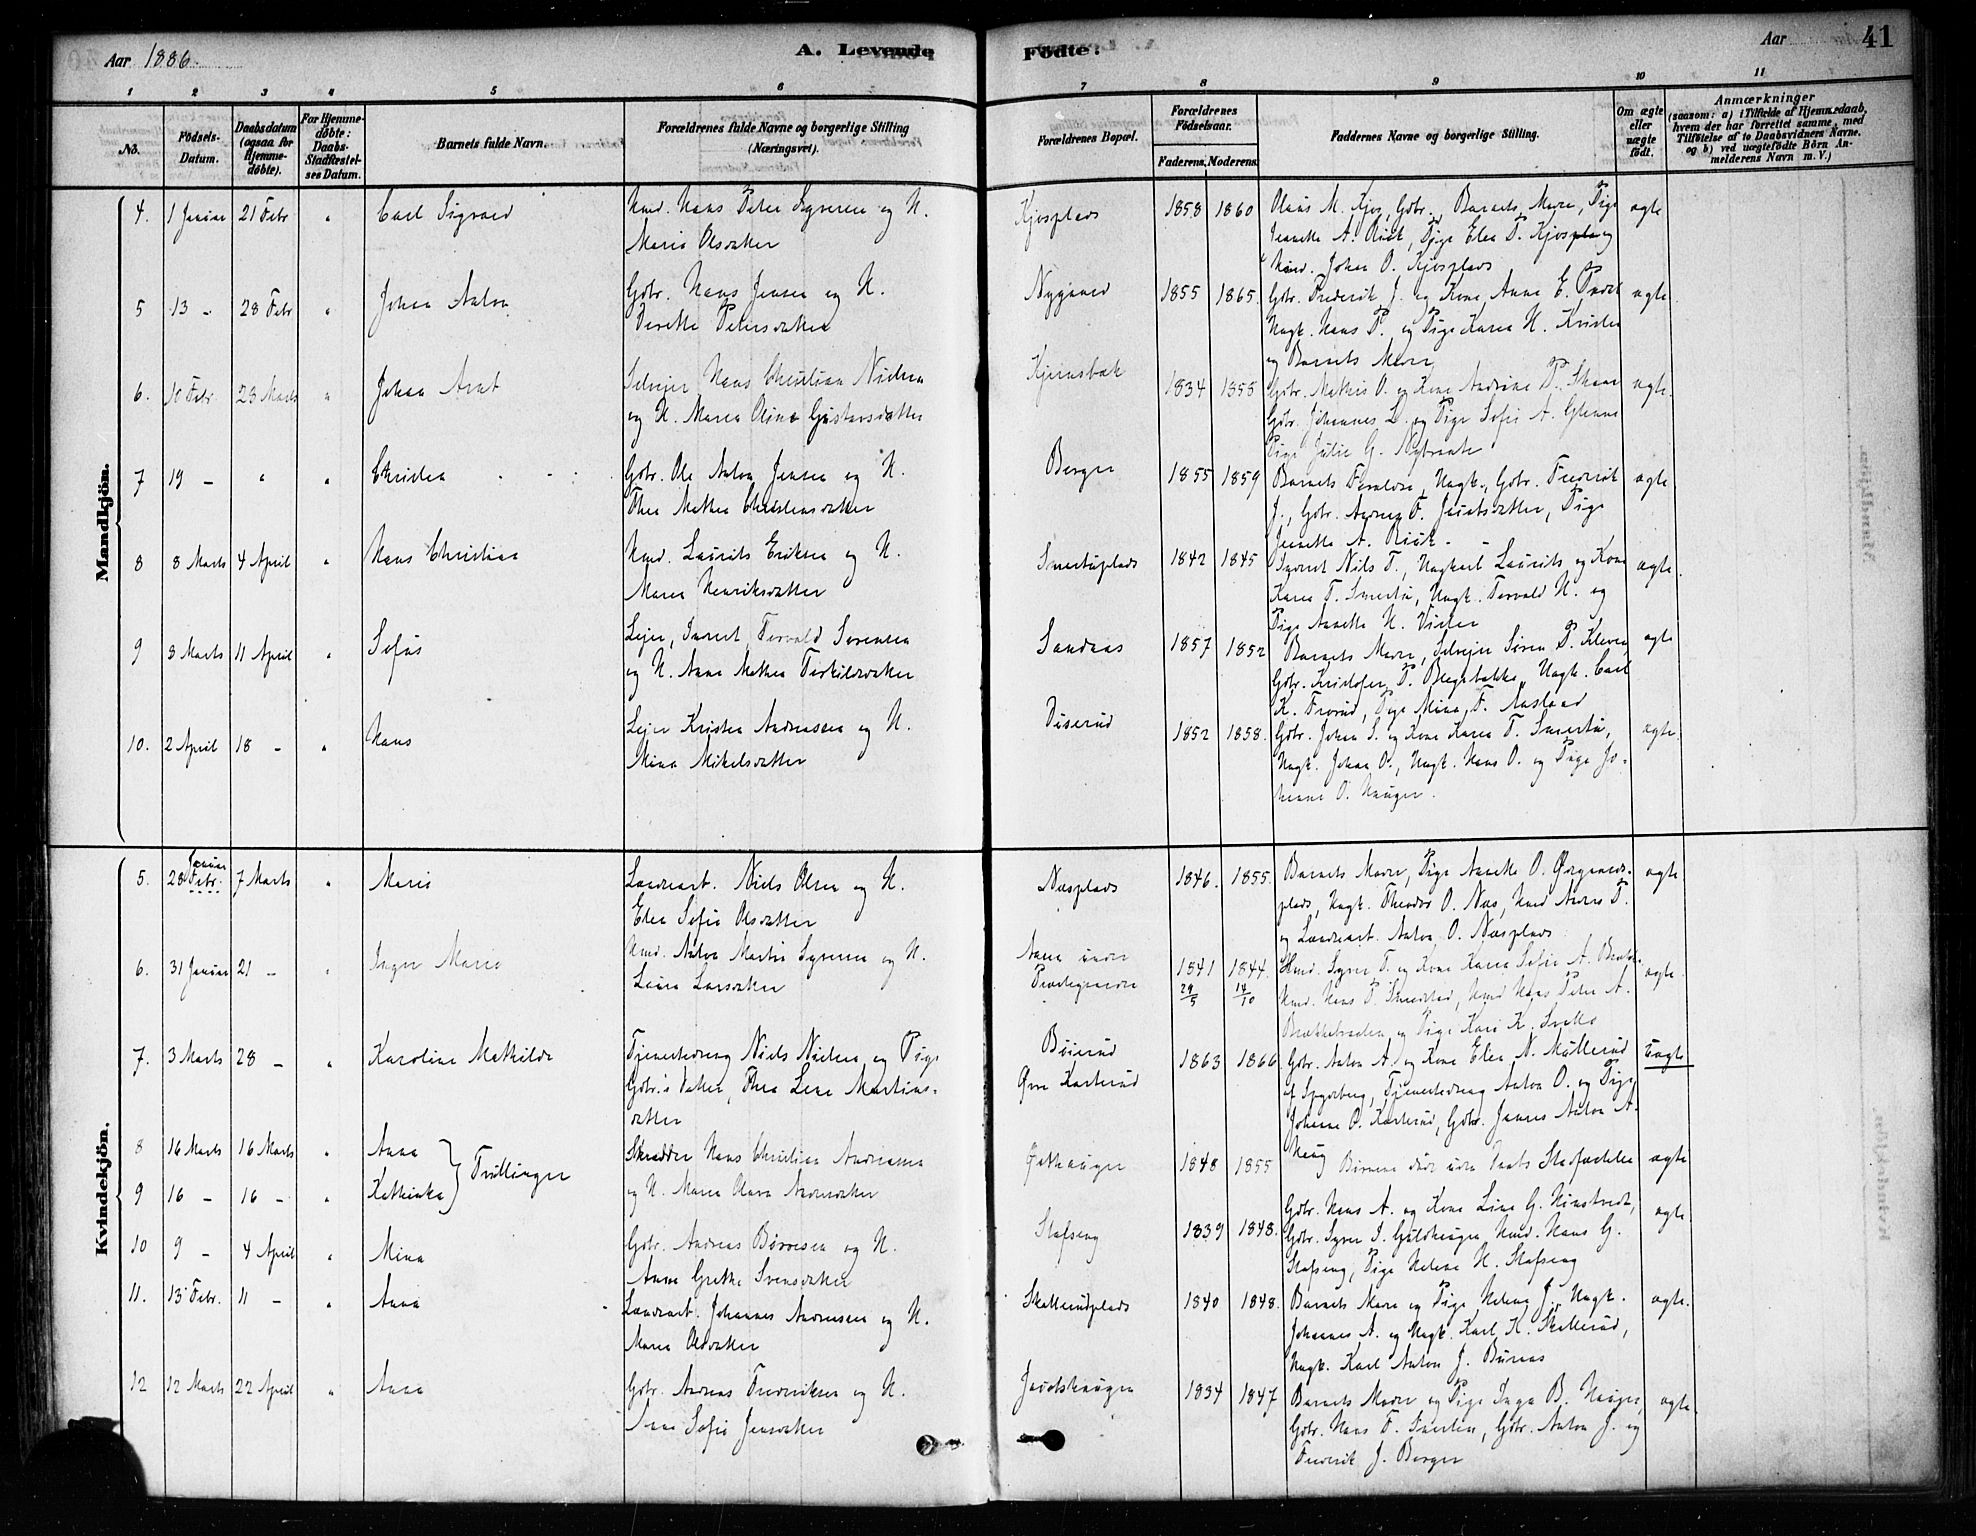 Aar 1886.
A. Levende Födte:
Aar
41
1 2 3 4 5 6 7 8 9 10 11
No.
Födsels-Datum.
Daabsdatum (ogsaa for Hjemmedöbte).
For Hjemmedöbte: Daabs-Stadfæstelses Datum.
Barnets fulde Navn.
Forældrenes fulde Navne og borgerlige Stilling (Næringsvei).
Forældrenes Bopæl.
Forældrenes Födselsaar.
Faderens. Moderens.
Faddernes Navne og borgerlige Stilling.
Om ægte eller uægte födt.
Anmærkninger
(saasom: a) i Tilfælde af Hjemmedaab, hvem der har forrettet samme, med Tilföielse af to Daabsvidners Navne. og b) ved uægtefödte Börn Anmelderens Navn m. V.)
Mandkjön.
4. 1 Januar 21 Febr " Carl Sigvard
Hmd. Hans Peter Syversen og H.
Marie Olsdatter
Kjosplads 1858 1860
Olaus M. Kjos, Gbr. Barnets Moder, Pige
Jeanette A. Pige Elen P. Kjosplads
Hmd. Johan O. Kjosplads
ægte
5 13 - 28 Febr " Johan Anton
Gbr. Hans Jensen og H.
Dorthe Petersdatter
Nygaard 1855 1865.
Gbr. Frederik J. og Kone Anne E.
Ungk. Hans P. og Pige Karen H.
og Barnets Moder
ægte
6. 10 Febr 23 Marts " Johan Arnt
Selveier Hans Christian Nielsen
og H. Maren Oline Gustavsdatter
Kjernsbæk 1834 1855
Gbr. Mathis O. og Kone Andrine P. Skaar
Gbr. Johannes L. og Pige Sofie A. Glenne
Pige Julie G. Nybraate
ægte.
7 19 - " " Christen
Gbr. Ole Anton Jensen og H.
Thea Mathea Christensdatter
Berger 1855 1859
Barnets Forældre, Ungk., Gbr. Frederik
J., Gbr. Andrea O. Jacobsdatter, Pige
Jeanette A.
ægte
8 8 Marts 4 April " Hans Christian
Hmd. Laurits Eriksen og H.
Maren Henriksdatter
Smertuplads 1842 1845
Nils T., Ungkarl Laurits og Kone
Karen T. Smertu, Ungk. Torvald H. og
Pige Annette H.
ægte.
9 8 Marts 11 April " Sofus
Leier, Torvald Sørensen
og H. Anne Mathea Terkildsdatter
Sandaas 1857 1852
Barnets Moder, Selveier Søren P. Kleven
Gbr. Kristofer P. Ungk. Carl
K. Pige Mina F. Aasland
ægte
10. 2 April 18 - " Hans
Leier Kristen Andreassen og H.
Mina Mikelsdatter
Diserud 1852 1858.
Gbr. Johan S. og Kone Karen T. Smertu,
Ungk. Johan O., Ungk. Hans O. og Pige Jo-
hanne O. Hauger.
ægte.
Kvindekjön.
5. 28 Januar Febr. 7 Marts " Marie
Landarb. Niels Olsen og H.
Elen Sofie Olsdatter
Næsplads 1846. 1855.
Barnets Moder, Pige Annette O.
plads, Ungk. Theodor O. Næs, Hmd Andreas T.
og Landarb. Anton O. Næsplads
ægte
6. 31 Januar 21 - " Inger Marie
Hmd. Anton Martin Syversen og H.
Larsdatter
1841 29/5 1844. 14/10
Hmd. Syver T. og Kone Karen Sofie A.
Hmd. Hans P. Smedstad, Hmd Hans Peter A.
og Pige Kari K.
ægte
7. 3 Marts 28 - Karoline Mathilde
Tjenestedreng Niels Nielsen og Pige
Gbr.s Datter, Thea Lene Martins-
datter
Biierud
Øvre Karterud
1863 1866
Gbr. Anton A. og Kone Elen N. Møllerud
af Spydeberg, Tjenestedreng Anton O. og Pige
Johanne O. Karterud, Gbr. Janus Anton A.
Haug
Uægte
8 16 Marts 16 Marts " Anna
9 16 - 16 - " Kathinka
Tvillinger
Skrædder Hans Christian Andreassen
og H. Maren Olava Andersdatter
1848 1855
Børnene døde uden Daabs Stadfæstelse
ægte
10 9 - 4 April " Mina
Gbr. Andreas Børresen og H.
Anne Grethe Svensdatter
Stafseng 1839 1848.
Gbr. Hans A. og Kone Line G.
Gbr. Syver I. Guldhaugen Hmd. Hans G.
Stafseng, Pige Helene H. Stafseng
ægte.
11. 13 Febr. 11 - " Anna
Landarb. Johannes Andersen og H.
Maren Olsdatter
Skallerudplads 1840 1848.
Barnets Moder og Pige Helene J., Ungk.
Johannes A. og Ungk. Karl K. Skallerud,
Ungk. Karl Anton J. Buraas
ægte.
12 12 Marts 22 April " Anna
Gbr. Andreas Frederiksen og H.
Sofie Jensdatter
Jacobshaugen 1834 1847
Barnets Moder og Pige Inga B. Hauger,
Gbr. Hans T. Gbr. Anton J. og
Frederik J. Berger
ægte